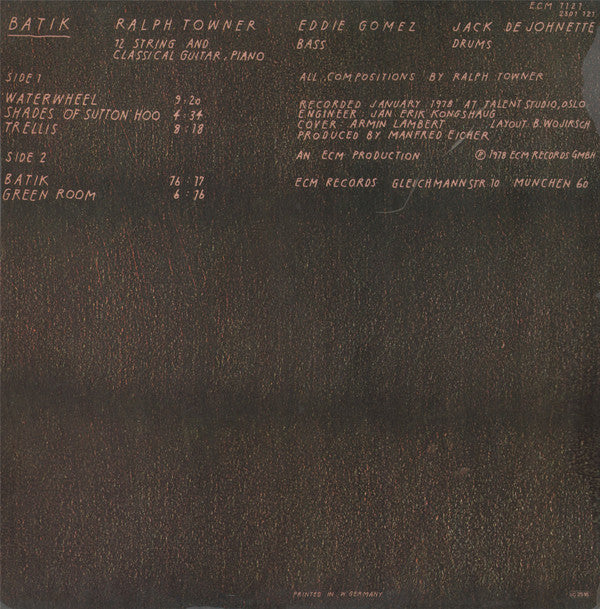 BATIK
RALPH TOWNER
12 STRING AND
CLASSICAL GUITAR, PIANO
EDDIE GOMEZ
BASS
JACK DE JOHNETTE
DRUMS
ECM 1121
2301 121
SIDE 1
WATERWHEEL 9:20
SHADES OF SUTTON HOO 4:34
TRELLIS 8:18
SIDE 2
BATIK 16:17
GREEN ROOM 6:16
ALL COMPOSITIONS BY RALPH TOWNER
RECORDED JANUARY 1978 AT TALENT STUDIO, OSLO
ENGINEER: JAN ERIK KONGSHAUG
COVER: ARMIN LAMBERT LAYOUT: B. WOJIRSCH
PRODUCED BY MANFRED EICHER
AN ECM PRODUCTION ℗ 1978 ECM RECORDS GMBH
ECM RECORDS GLEICHMANNSTR 10 MÜNCHEN 60
PRINTED IN W. GERMANY